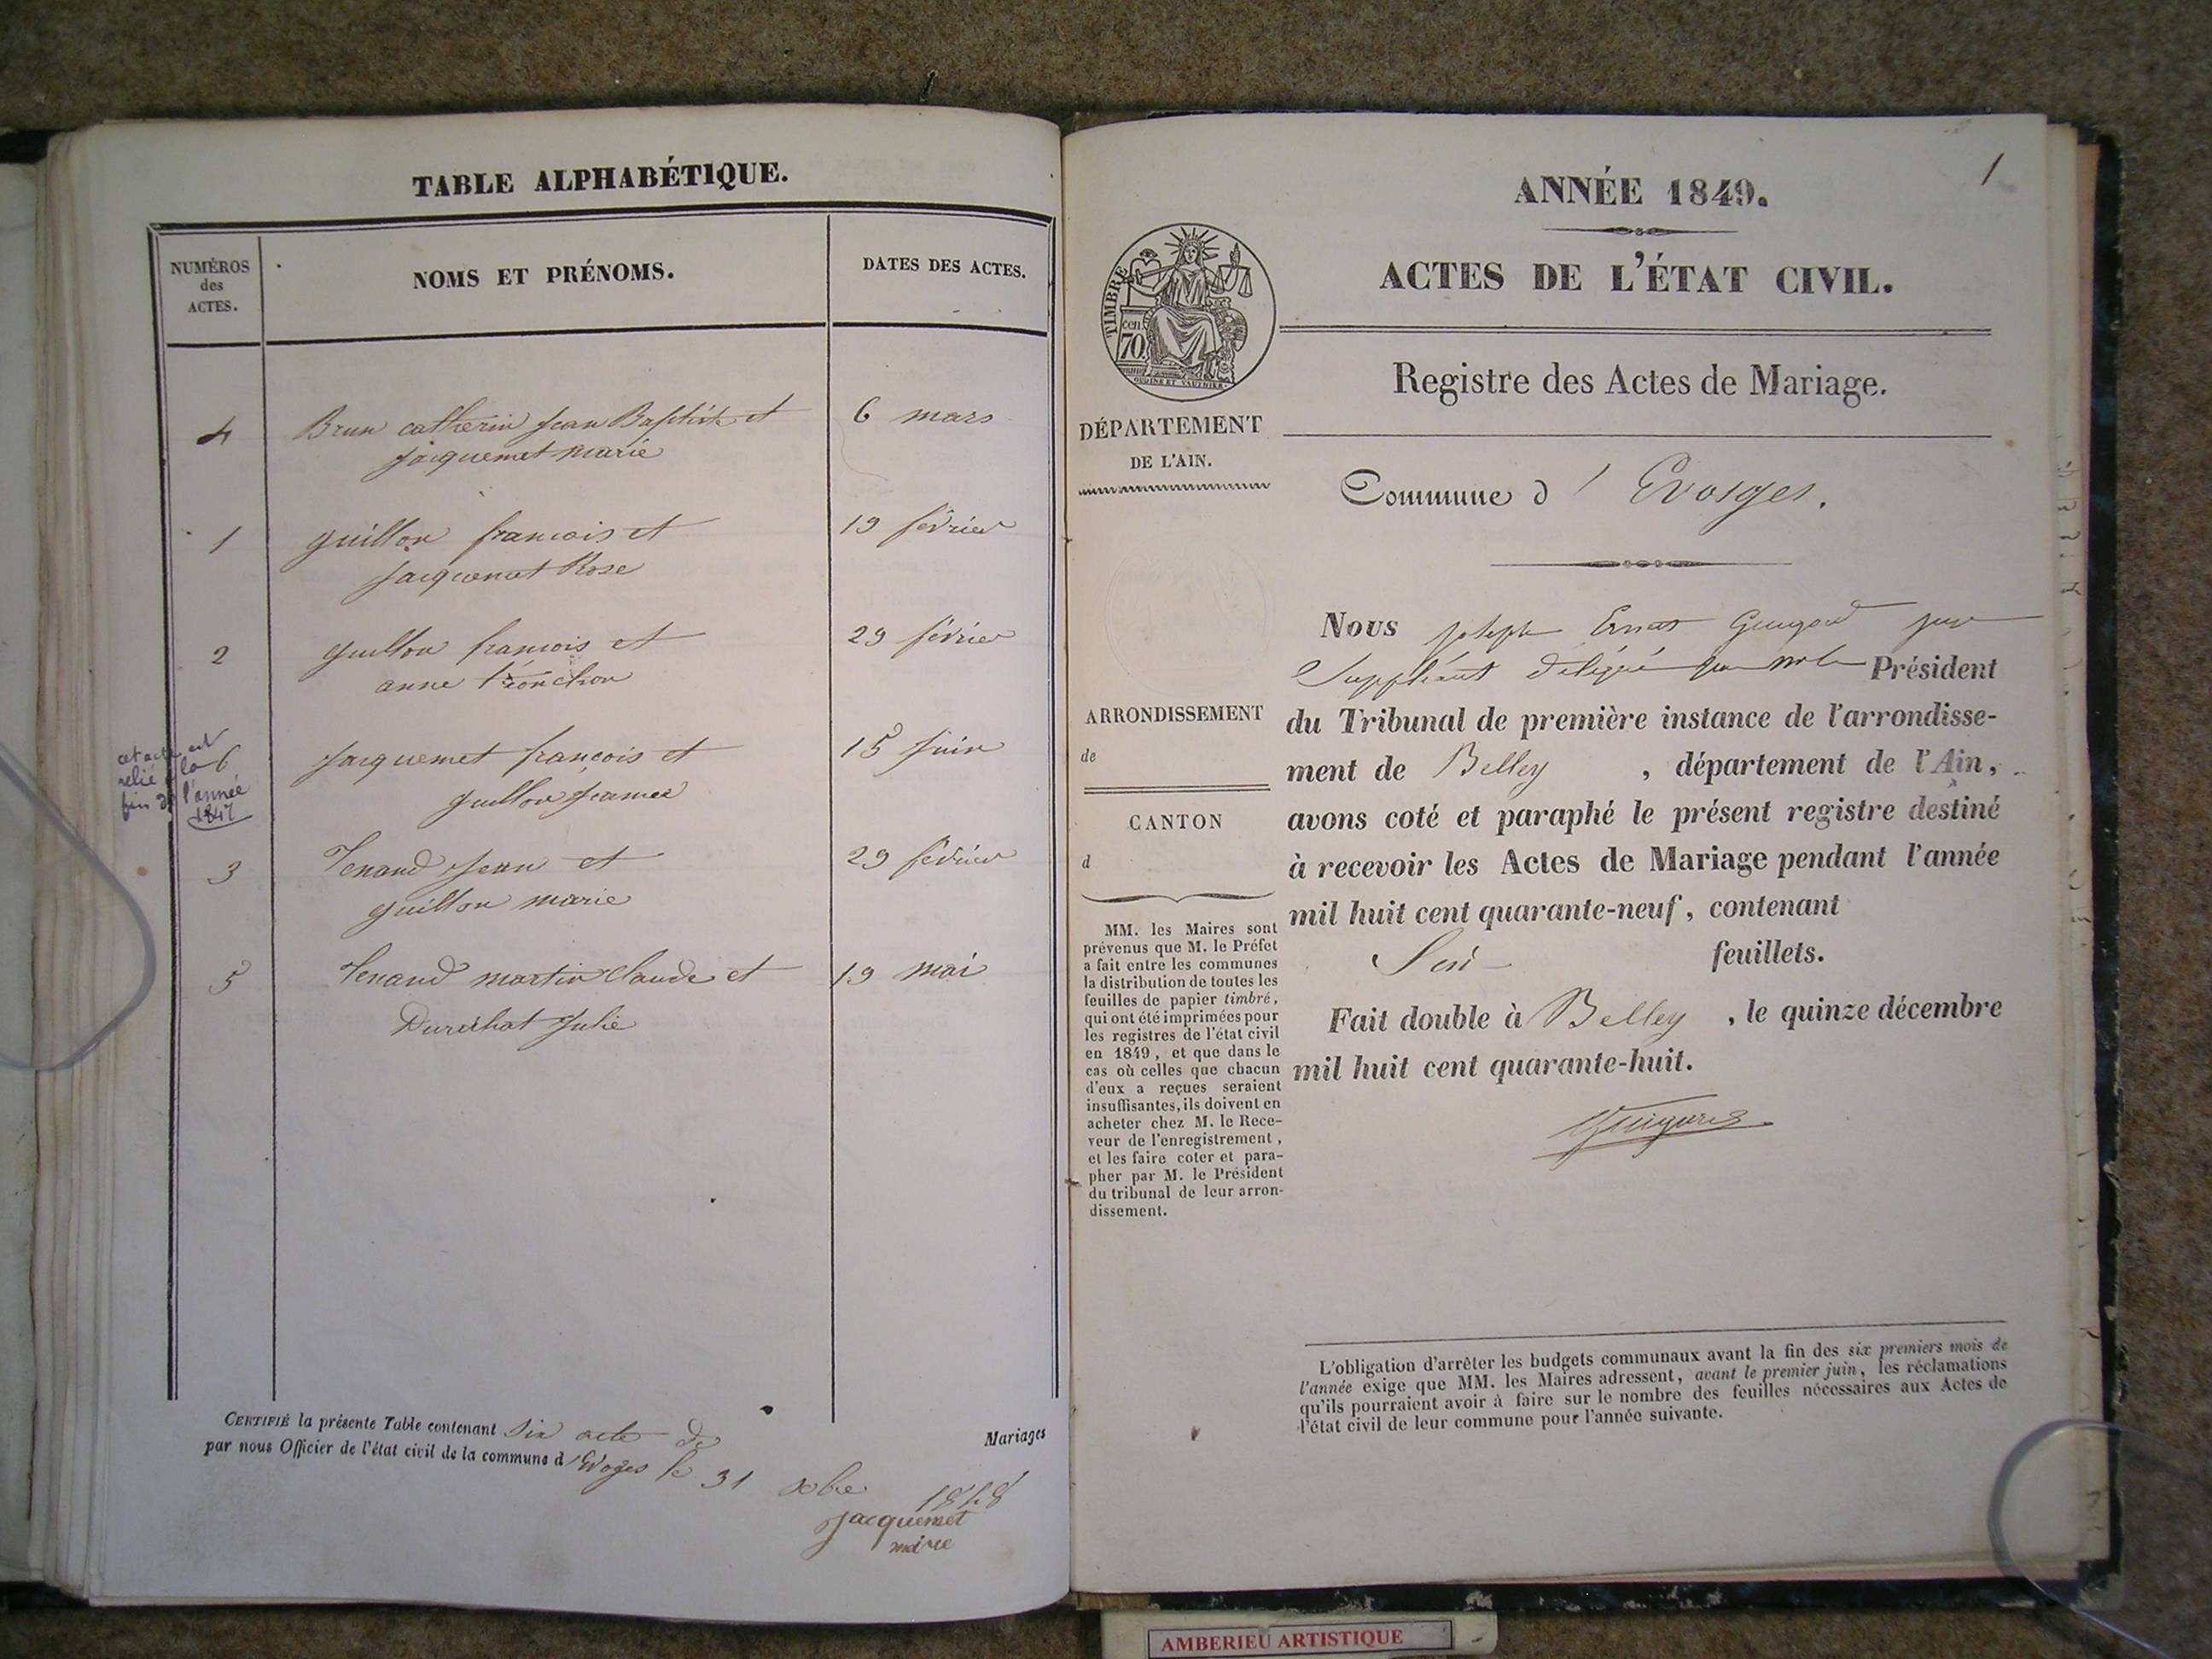 TABLE ALPHABÉTIQUE.
NUMÉROS
des
ACTES.
NOMS ET PRÉNOMS.
DATES DES ACTES.
4 Brun catherin jean Baptiste et 6 mars
jacquemet marie
1 guillon francois et 19 février
jacquemet Rose
2 guillon francois et 29 février
anne tronchon
cet acte est
relié à la
fin de l'année
1847
6 jacquemet françois et 15 juin
guillon jeanne
3 Tenand jean et 29 février
guillon marie
5 Tenand martin Claude et 19 mai
Duréchat julie
CERTIFIÉ la présente Table contenant Six acte de Mariages
par nous Officier de l'état civil de la commune d'Evoges le 31 xbre 1848
jacquemet
maire
1
ANNÉE 1849.
ACTES DE L'ÉTAT CIVIL.
TIMBRE
cen.
70
Registre des Actes de Mariage.
DÉPARTEMENT
DE L'AIN.
Commune d' Evosges.
Nous joseph Ernest juge
Suppléant délégué par Mr le Président
du Tribunal de première instance de l'arrondisse-
ment de Belley , département de l'Ain,
avons coté et paraphé le présent registre destiné
à recevoir les Actes de Mariage pendant l'année
mil huit cent quarante-neuf, contenant
feuillets.
Fait double à Belley , le quinze décembre
mil huit cent quarante-huit.
ARRONDISSEMENT
de
CANTON
d
MM. les Maires sont
prévenus que M. le Préfet
a fait entre les communes
la distribution de toutes les
feuilles de papier timbré,
qui ont été imprimées pour
les registres de l'état civil
en 1849, et que dans le
cas où celles que chacun
d'eux a reçues seraient
insuffisantes, ils doivent en
acheter chez M. le Rece-
veur de l'enregistrement,
et les faire coter et para-
pher par M. le Président
du tribunal de leur arron-
dissement.
L'obligation d'arrêter les budgets communaux avant la fin des six premiers mois de
l'année exige que MM. les Maires adressent, avant le premier juin, les réclamations
qu'ils pourraient avoir à faire sur le nombre des feuilles nécessaires aux Actes de
l'état civil de leur commune pour l'année suivante.
AMBERIEU ARTISTIQUE